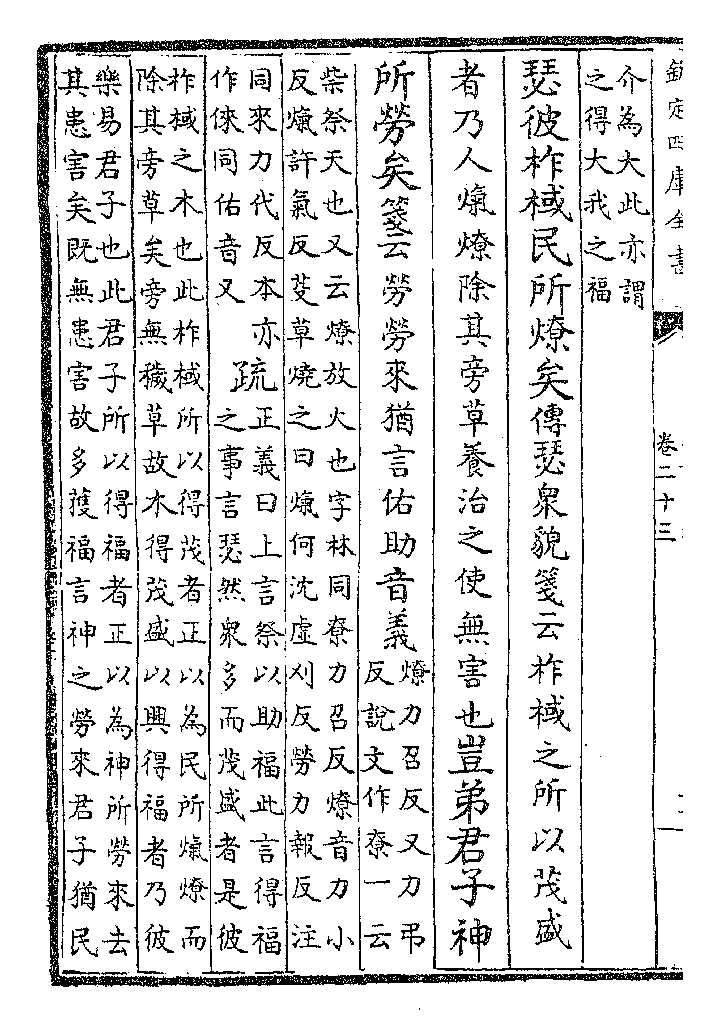 欽定四庫全書
卷二十三
介為大此亦謂
之得大我之福
瑟彼柞棫民所燎矣傳瑟衆貌箋云柞棫之所以茂盛
者乃人熂燎除其旁草養治之使無害也豈弟君子神
所勞矣箋云勞勞來猶言佑助音義
燎力召反又力弔
反說文作尞一云
柴祭天也又云燎放火也字林同尞力召反燎音力小
反熂許氣反芟草燒之曰熂何沈虛刈反勞力報反注
同來力代反本亦
作倈同佑音又
疏
正義曰上言祭以助福此言得福
之事言瑟然衆多而茂盛者是彼
柞棫之木也此柞棫所以得茂者正以為民所熂燎而
除其旁草矣旁無穢草故木得茂盛以興得福者乃彼
樂易君子也此君子所以得福者正以為神所勞來去
其患害矣既無患害故多獲福言神之勞來君子猶民